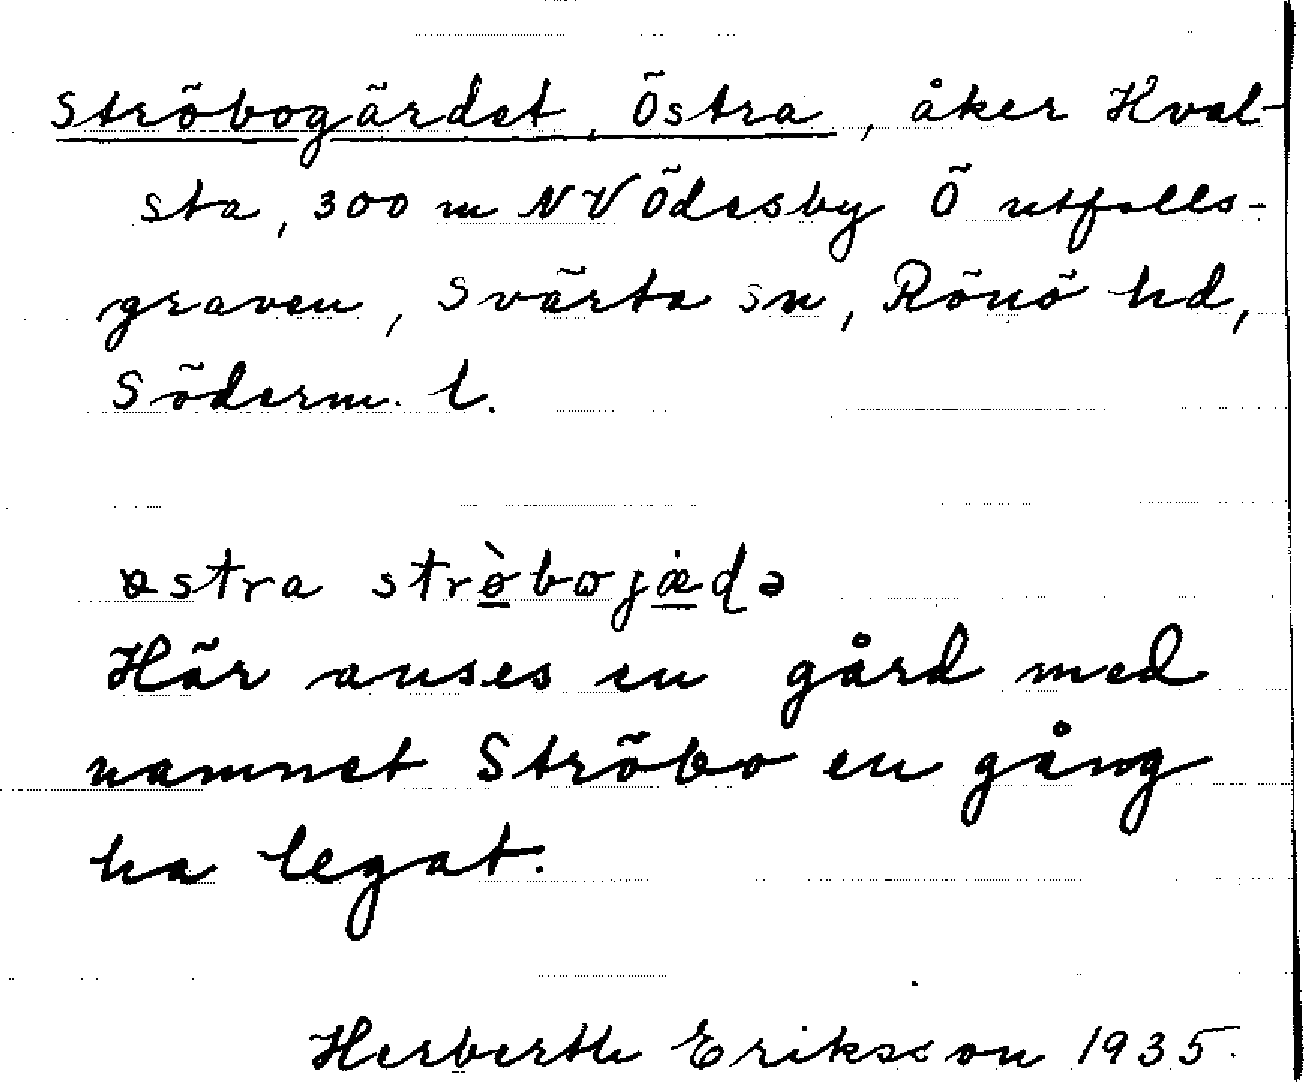 Ströbogärdet, Östra, åker Hval-
sta, 300 m NV Ödesby Ö utfalls-
graven, Svärta sn, Rönö hd,
Söderm. l.
østra strø̀bojædə
Här anses en gård med
namnet Ströbo en gång
ha legat.
Herberth Eriksson 1935.